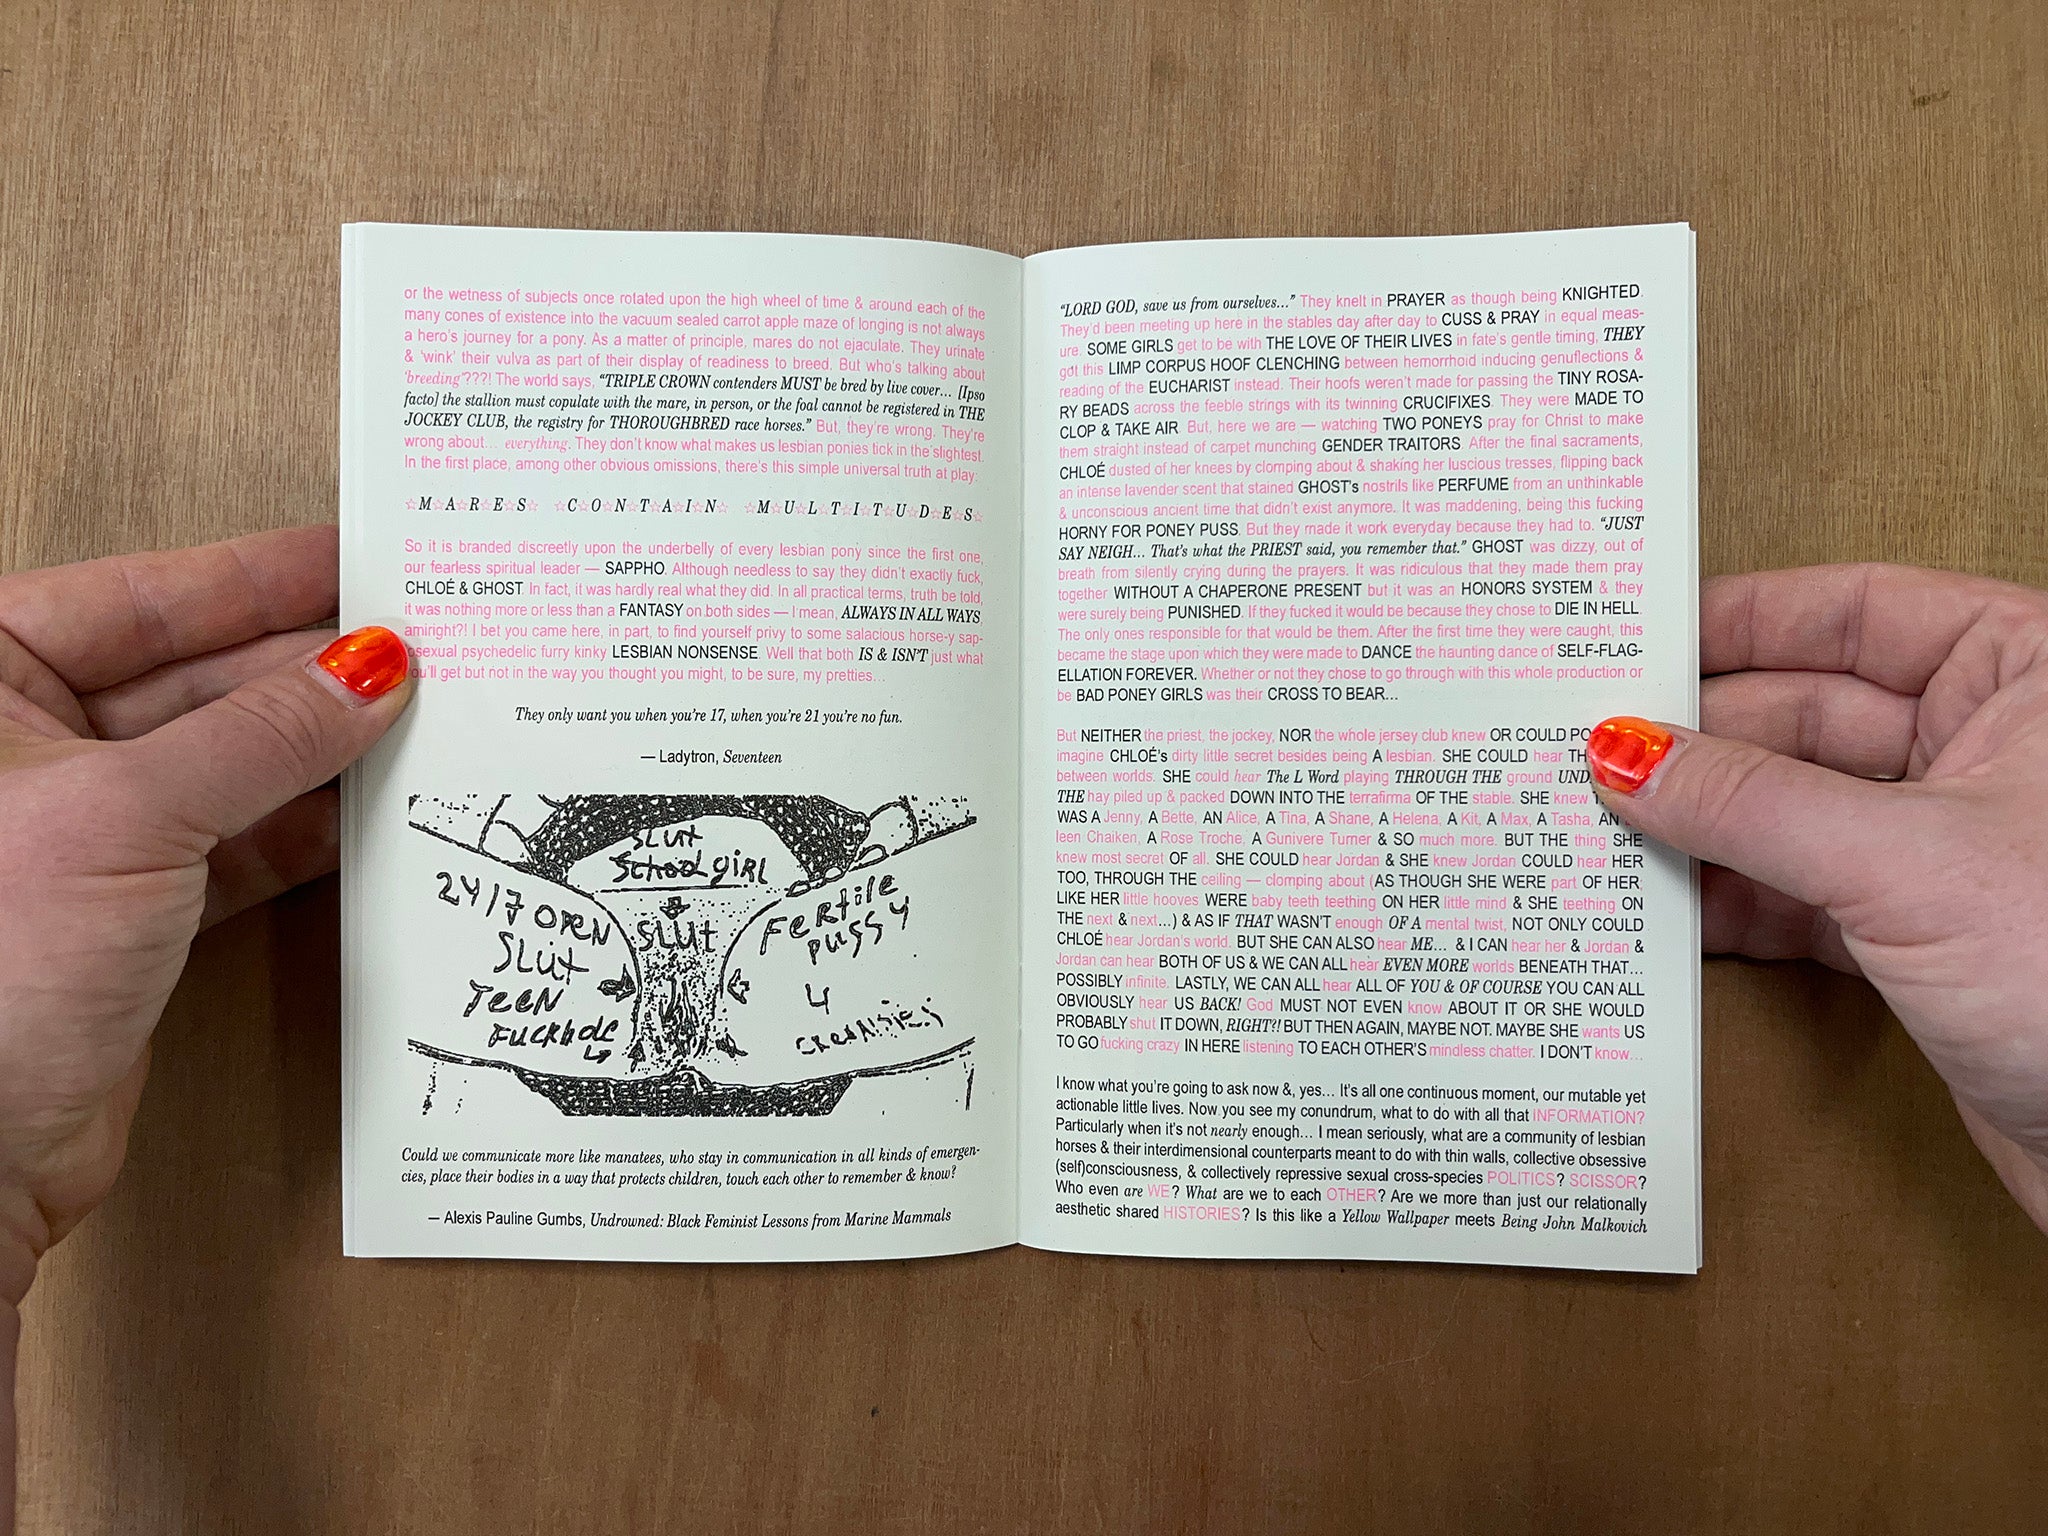 or the wetness of subjects once rotated upon the high wheel of time & around each of the
many cones of existence into the vacuum sealed carrot apple maze of longing is not always
a hero's journey for a pony. As a matter of principle, mares do not ejaculate. They urinate
& 'wink' their vulva as part of their display of readiness to breed. But who's talking about
'breeding'???! The world says, "TRIPLE CROWN contenders MUST be bred by live cover... [Ipso
facto] the stallion must copulate with the mare, in person, or the foal cannot be registered in THE
JOCKEY CLUB, the registry for THOROUGHBRED race horses." But, they're wrong. They're
wrong about... everything. They don't know what makes us lesbian ponies tick in the slightest.
In the first place, among other obvious omissions, there's this simple universal truth at play:
☆M☆A☆R☆E☆S☆ ☆C☆O☆N☆T☆A☆I☆N☆ ☆M☆U☆L☆T☆I☆T☆U☆D☆E☆S☆
So it is branded discreetly upon the underbelly of every lesbian pony since the first one,
our fearless spiritual leader — SAPPHO. Although needless to say they didn't exactly fuck,
CHLOÉ & GHOST. In fact, it was hardly real what they did. In all practical terms, truth be told,
it was nothing more or less than a FANTASY on both sides — I mean, ALWAYS IN ALL WAYS,
amiright?! I bet you came here, in part, to find yourself privy to some salacious horse-y sap-
posexual psychedelic furry kinky LESBIAN NONSENSE. Well that both IS & ISN'T just what
you'll get but not in the way you thought you might, to be sure, my pretties...
They only want you when you're 17, when you're 21 you're no fun.
— Ladytron, Seventeen
Could we communicate more like manatees, who stay in communication in all kinds of emergen-
cies, place their bodies in a way that protects children, touch each other to remember & know?
— Alexis Pauline Gumbs, Undrowned: Black Feminist Lessons from Marine Mammals
"LORD GOD, save us from ourselves..." They knelt in PRAYER as though being KNIGHTED.
They'd been meeting up here in the stables day after day to CUSS & PRAY in equal meas-
ure. SOME GIRLS get to be with THE LOVE OF THEIR LIVES in fate's gentle timing, THEY
got this LIMP CORPUS HOOF CLENCHING between hemorrhoid inducing genuflections &
reading of the EUCHARIST instead. Their hoofs weren't made for passing the TINY ROSA-
RY BEADS across the feeble strings with its twinning CRUCIFIXES. They were MADE TO
CLOP & TAKE AIR. But, here we are — watching TWO PONEYS pray for Christ to make
them straight instead of carpet munching GENDER TRAITORS. After the final sacraments,
CHLOÉ dusted of her knees by clomping about & shaking her luscious tresses, flipping back
an intense lavender scent that stained GHOST's nostrils like PERFUME from an unthinkable
& unconscious ancient time that didn't exist anymore. It was maddening, being this fucking
HORNY FOR PONEY PUSS. But they made it work everyday because they had to. "JUST
SAY NEIGH... That's what the PRIEST said, you remember that." GHOST was dizzy, out of
breath from silently crying during the prayers. It was ridiculous that they made them pray
together WITHOUT A CHAPERONE PRESENT but it was an HONORS SYSTEM & they
were surely being PUNISHED. If they fucked it would be because they chose to DIE IN HELL.
The only ones responsible for that would be them. After the first time they were caught, this
became the stage upon which they were made to DANCE the haunting dance of SELF-FLAG-
ELLATION FOREVER. Whether or not they chose to go through with this whole production or
be BAD PONEY GIRLS was their CROSS TO BEAR...
But NEITHER the priest, the jockey, NOR the whole jersey club knew OR COULD
imagine CHLOÉ's dirty little secret besides being A lesbian. SHE COULD hear
between worlds. SHE could hear The L Word playing THROUGH THE ground
THE hay piled up & packed DOWN INTO THE terrafirma OF THE stable. SHE knew
WAS A Jenny, A Bette, AN Alice, A Tina, A Shane, A Helena, A Kit, A Max, A Tasha, AN
leen Chaiken, A Rose Troche, A Gunivere Turner & SO much more. BUT THE thing SHE
knew most secret OF all. SHE COULD hear Jordan & SHE knew Jordan COULD hear HER
TOO, THROUGH THE ceiling — clomping about (AS THOUGH SHE WERE part OF HER;
LIKE HER little hooves WERE baby teeth teething ON HER little mind & SHE teething ON
THE next & next...) & AS IF THAT WASN'T enough OF A mental twist, NOT ONLY COULD
CHLOÉ hear Jordan's world. BUT SHE CAN ALSO hear ME... & I CAN hear her & Jordan &
Jordan can hear BOTH OF US & WE CAN ALL hear EVEN MORE worlds BENEATH THAT...
POSSIBLY infinite. LASTLY, WE CAN ALL hear ALL OF YOU & OF COURSE YOU CAN ALL
OBVIOUSLY hear US BACK! God MUST NOT EVEN know ABOUT IT OR SHE WOULD
PROBABLY shut IT DOWN, RIGHT?! BUT THEN AGAIN, MAYBE NOT. MAYBE SHE wants US
TO GO fucking crazy IN HERE listening TO EACH OTHER'S mindless chatter. I DON'T know...
I know what you're going to ask now &, yes... It's all one continuous moment, our mutable yet
actionable little lives. Now you see my conundrum, what to do with all that INFORMATION?
Particularly when it's not nearly enough... I mean seriously, what are a community of lesbian
horses & their interdimensional counterparts meant to do with thin walls, collective obsessive
(self)consciousness, & collectively repressive sexual cross-species POLITICS? SCISSOR?
Who even are WE? What are we to each OTHER? Are we more than just our relationally
aesthetic shared HISTORIES? Is this like a Yellow Wallpaper meets Being John Malkovich